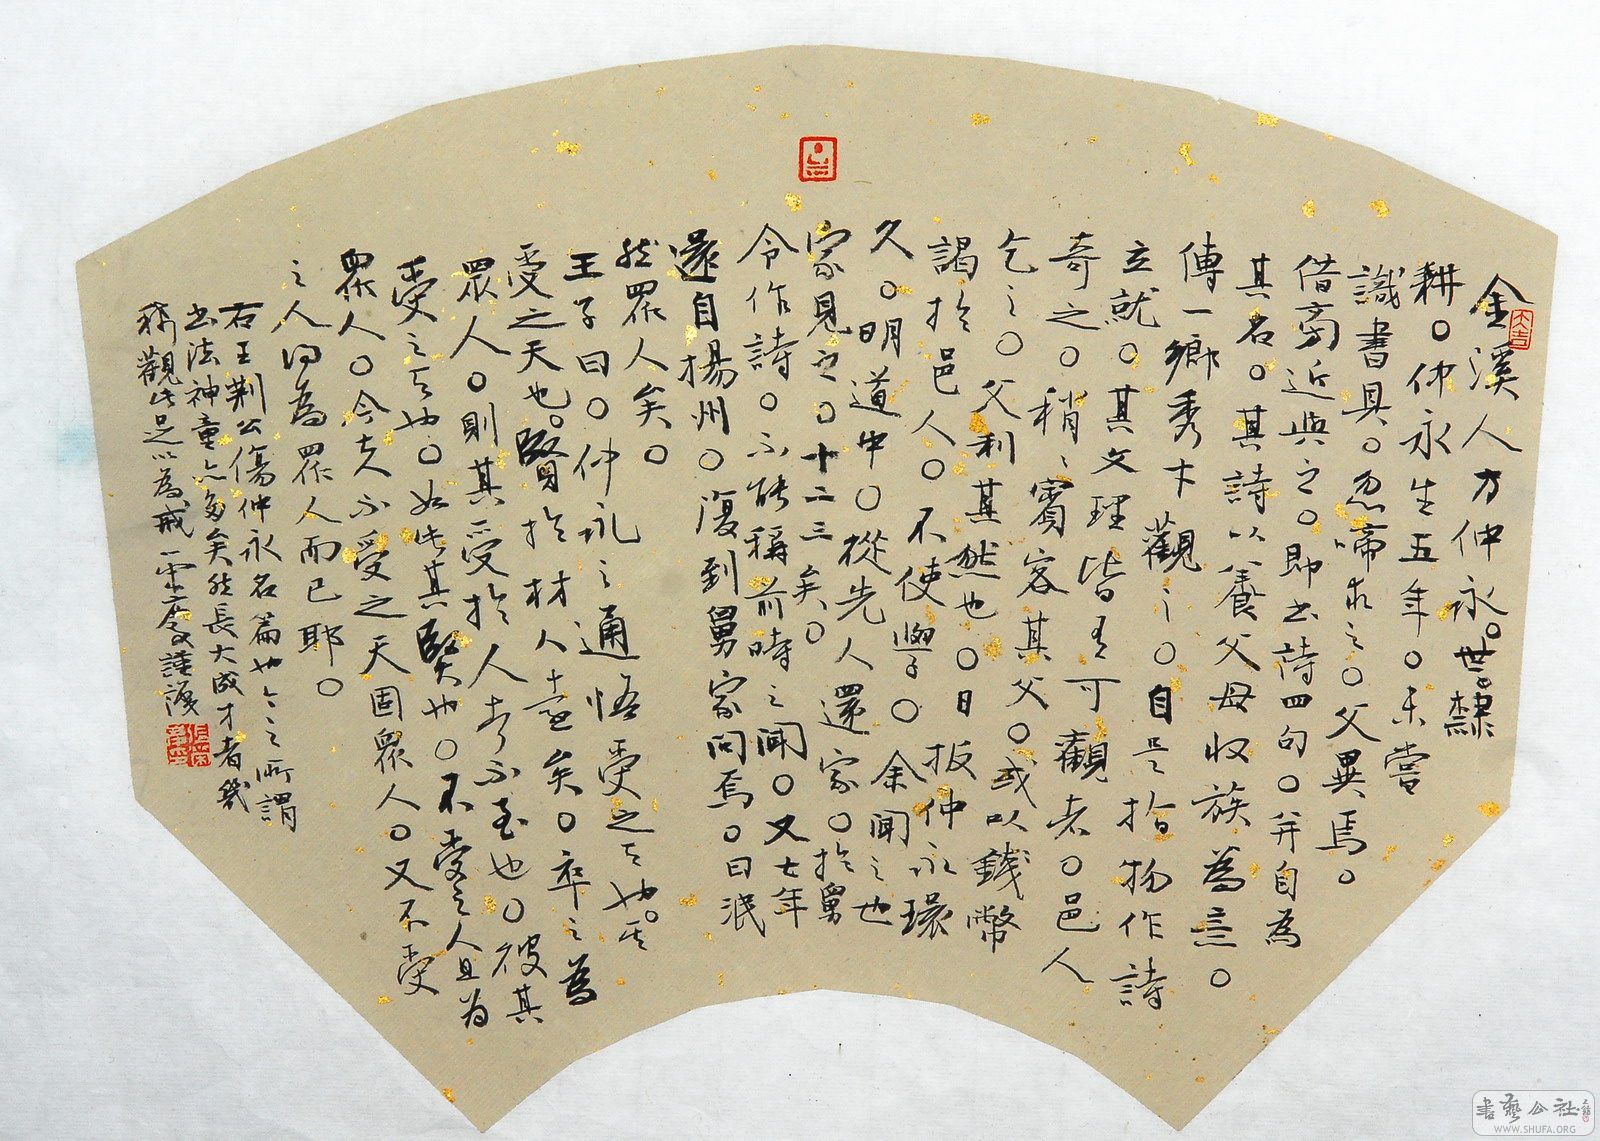 大吉
金溪人方仲永。世隸
耕。仲永生五年。未嘗
識書具。忽啼求之。父異焉。
借旁近與之。即书詩四句。并自為
其名。其詩以養父母收族為意。
傳一鄉秀才觀之。自是指物作詩
立就。其文理皆有可觀者。邑人
奇之。稍〻賓客其父。或以錢幣
乞之。父利其然也。日扳仲永環
謁於邑人。不使學。余聞之也
久。明道中。從先人還家。於舅
家見之。十二三矣。
令作詩。不能稱前時之聞。又七年
還自揚州。復到舅家問焉。曰泯
然眾人矣。
王子曰。仲永之通悟受之天也。其
受之天也。賢於材人遠矣。卒之為
眾人。則其受於人者不至也。彼其
受之天也。如此其賢也。不受之人且為
眾人。今夫不受之天固眾人。又不受
之人得為眾人而已耶。
右王荆公傷仲永名篇也今之所謂
书法神童亦多矣然長大成才者幾
稀觀此足以為戒 謹識
書藝公社
WWW.SHUFA.ORG